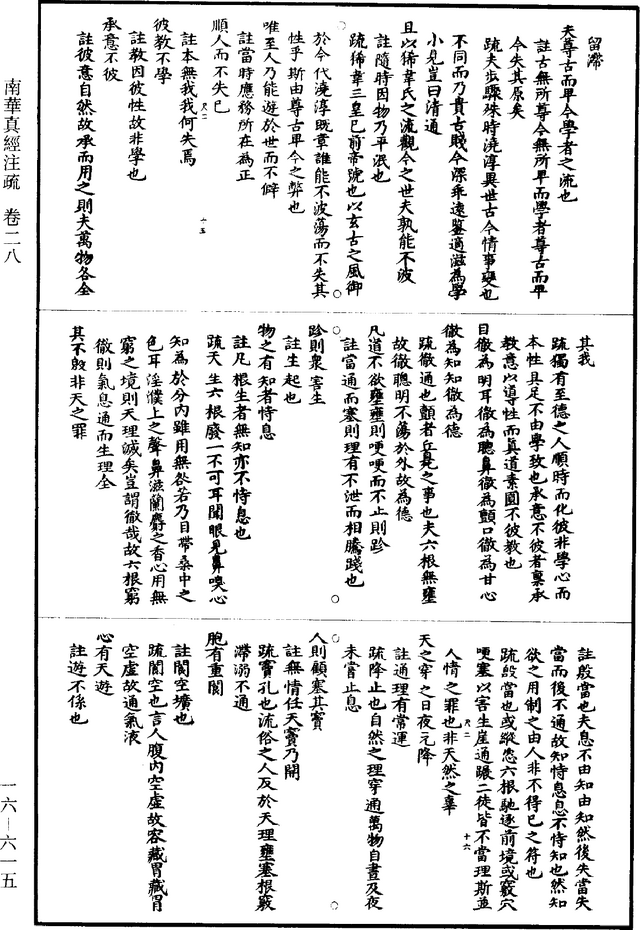 南華真經注疏　卷二八
一六—六一五
留滯
夫尊古而卑今學者之流也
註古無所尊今無所卑而學者尊古而卑
今失其原矣
疏夫步驟殊時澆淳異世古今情事變也
不同而乃貴古賤今深乖遠鑒適滋為學
小見豈曰清通
且以狶韋氏之流觀今之世夫孰能不波
註隨時因物乃平泯也
疏狶韋三皇已前帝號也以玄古之風御
於今代澆淳既章誰能不波蕩而不失其
性乎斯由尊古卑今之弊也
唯至人乃能遊於世而不僻
註當時應務所在為正
順人而不失已
註本無我我何失焉
彼教不學
註教因彼性故非學也
承意不彼
註彼意自然故承而用之則夫萬物各全
尺二
十五
其我
疏獨有至德之人順時而化彼非學心而
本性具足不由學致也承意不彼者稟承
教意以導性而真道素圓不彼教也
目徹為明耳徹為聰鼻徹為顫口徹為甘心
徹為知知徹為德
疏徹通也顫者辛臭之事也夫六根無壅
故徹聰明不蕩於外故為德
凡道不欲壅壅則哽哽而不止則跈
註當通而塞則理有不泄而相騰踐也
跈則衆害生
註生起也
物之有知者恃息
註凡根生者無知亦不恃息也
疏天生六根廢一不可耳聞眼見鼻嗅心
知為於分內雖用無欲若乃目帶桑中之
色耳淫濮上之聲鼻滋蘭麝之香心用無
窮之境則天理滅矣豈謂徹哉故六根窮
徹則氣息通而生理全
其不殷非天之罪
註殷當也夫息不由知由知然後失當失
當而後不通故知恃息息不恃知也然知
欲之用制之由人非不得已之符也
疏殷當也或縱恣六根馳逐前境或竅穴
哽塞以害生崖通躡二徒皆不當理斯並
人情之罪也非天然之辜
天之穿之日夜无降
註通理有常運
疏降止也自然之理穿通萬物自晝及夜
未嘗止息
人則顧塞其竇
註無情任天竇乃開
疏竇孔也流俗之人反於天理壅塞根竅
滯溺不通
胞有重閬
註閬空曠也
疏閬空也言人腹內空虛故容藏胃藏胃
空虛故通氣液
心有天遊
註遊不係也
尺二
十六